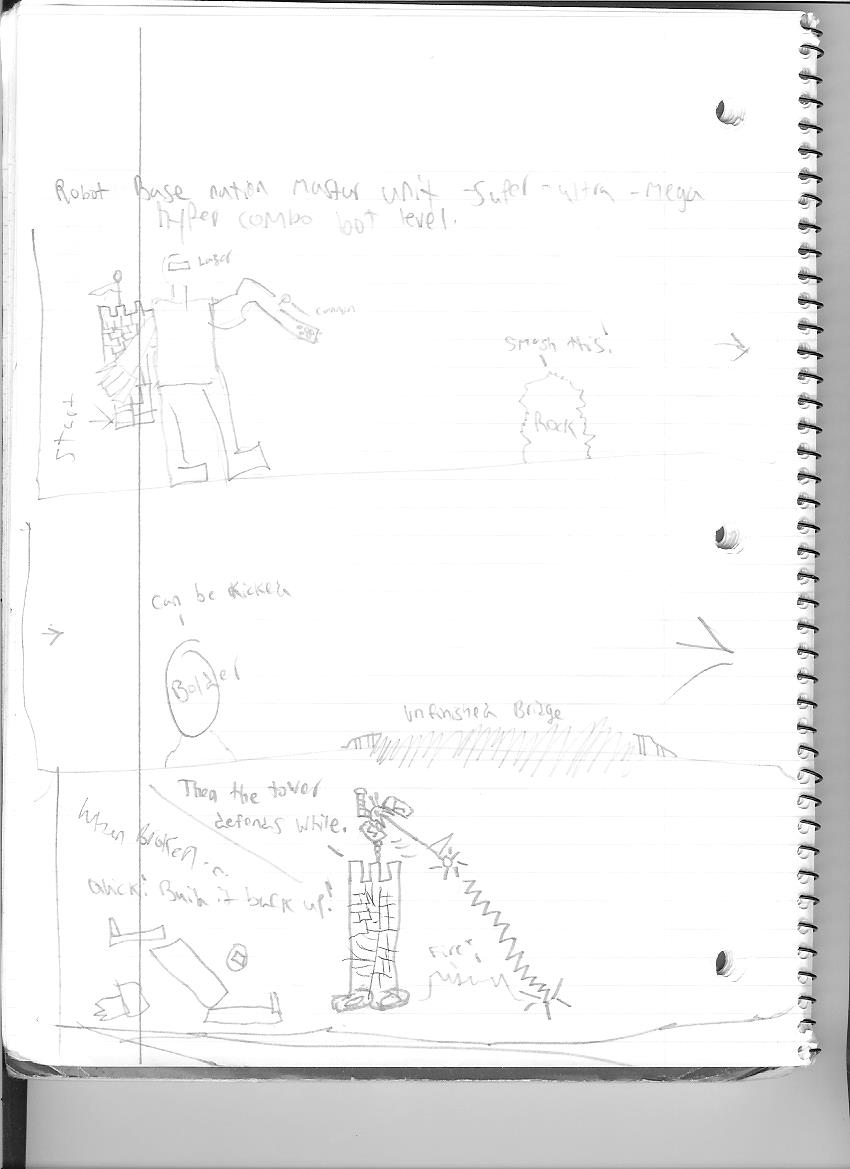 Robot Base nation Mastur unit -Sufer-ultra-mega
hyper combo bot level.
Lasor
cannon
Smash this!
Start
Rock
Can be Kicked
Bolder
unfinished Bridge
Then the tower
defends while.
When Broken...
Quick! Build it back up!
Fire!